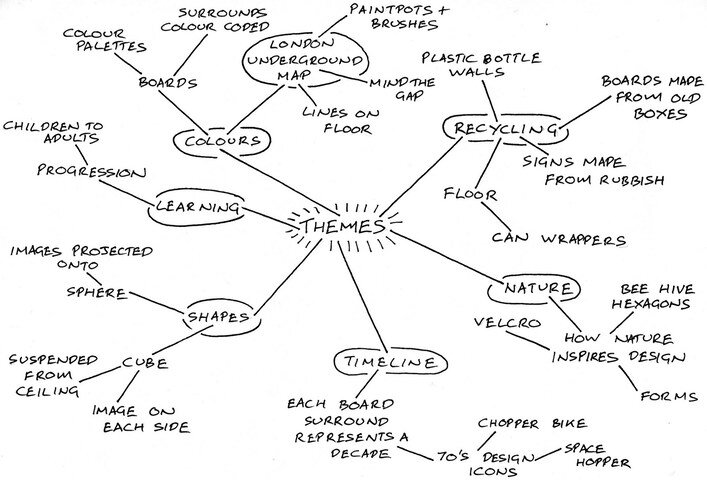 SURROUNDS
COLOUR CODED
COLOUR
PALETTES
BOARDS
COLOURS
LONDON
UNDERGROUND
MAP
PAINTPOTS +
BRUSHES
MIND THE
GAP
LINES ON
FLOOR
PLASTIC BOTTLE
WALLS
BOARDS MADE
FROM OLD
BOXES
RECYCLING
SIGNS MADE
FROM RUBBISH
FLOOR
CAN WRAPPERS
CHILDREN TO
ADULTS
PROGRESSION
LEARNING
THEMES
IMAGES PROJECTED
ONTO
SPHERE
SHAPES
CUBE
SUSPENDED
FROM
CEILING
IMAGE ON
EACH SIDE
NATURE
BEE HIVE
HEXAGONS
VELCRO
HOW NATURE
INSPIRES DESIGN
FORMS
TIMELINE
EACH BOARD
SURROUND
REPRESENTS A
DECADE
70'S DESIGN
ICONS
CHOPPER BIKE
SPACE
HOPPER